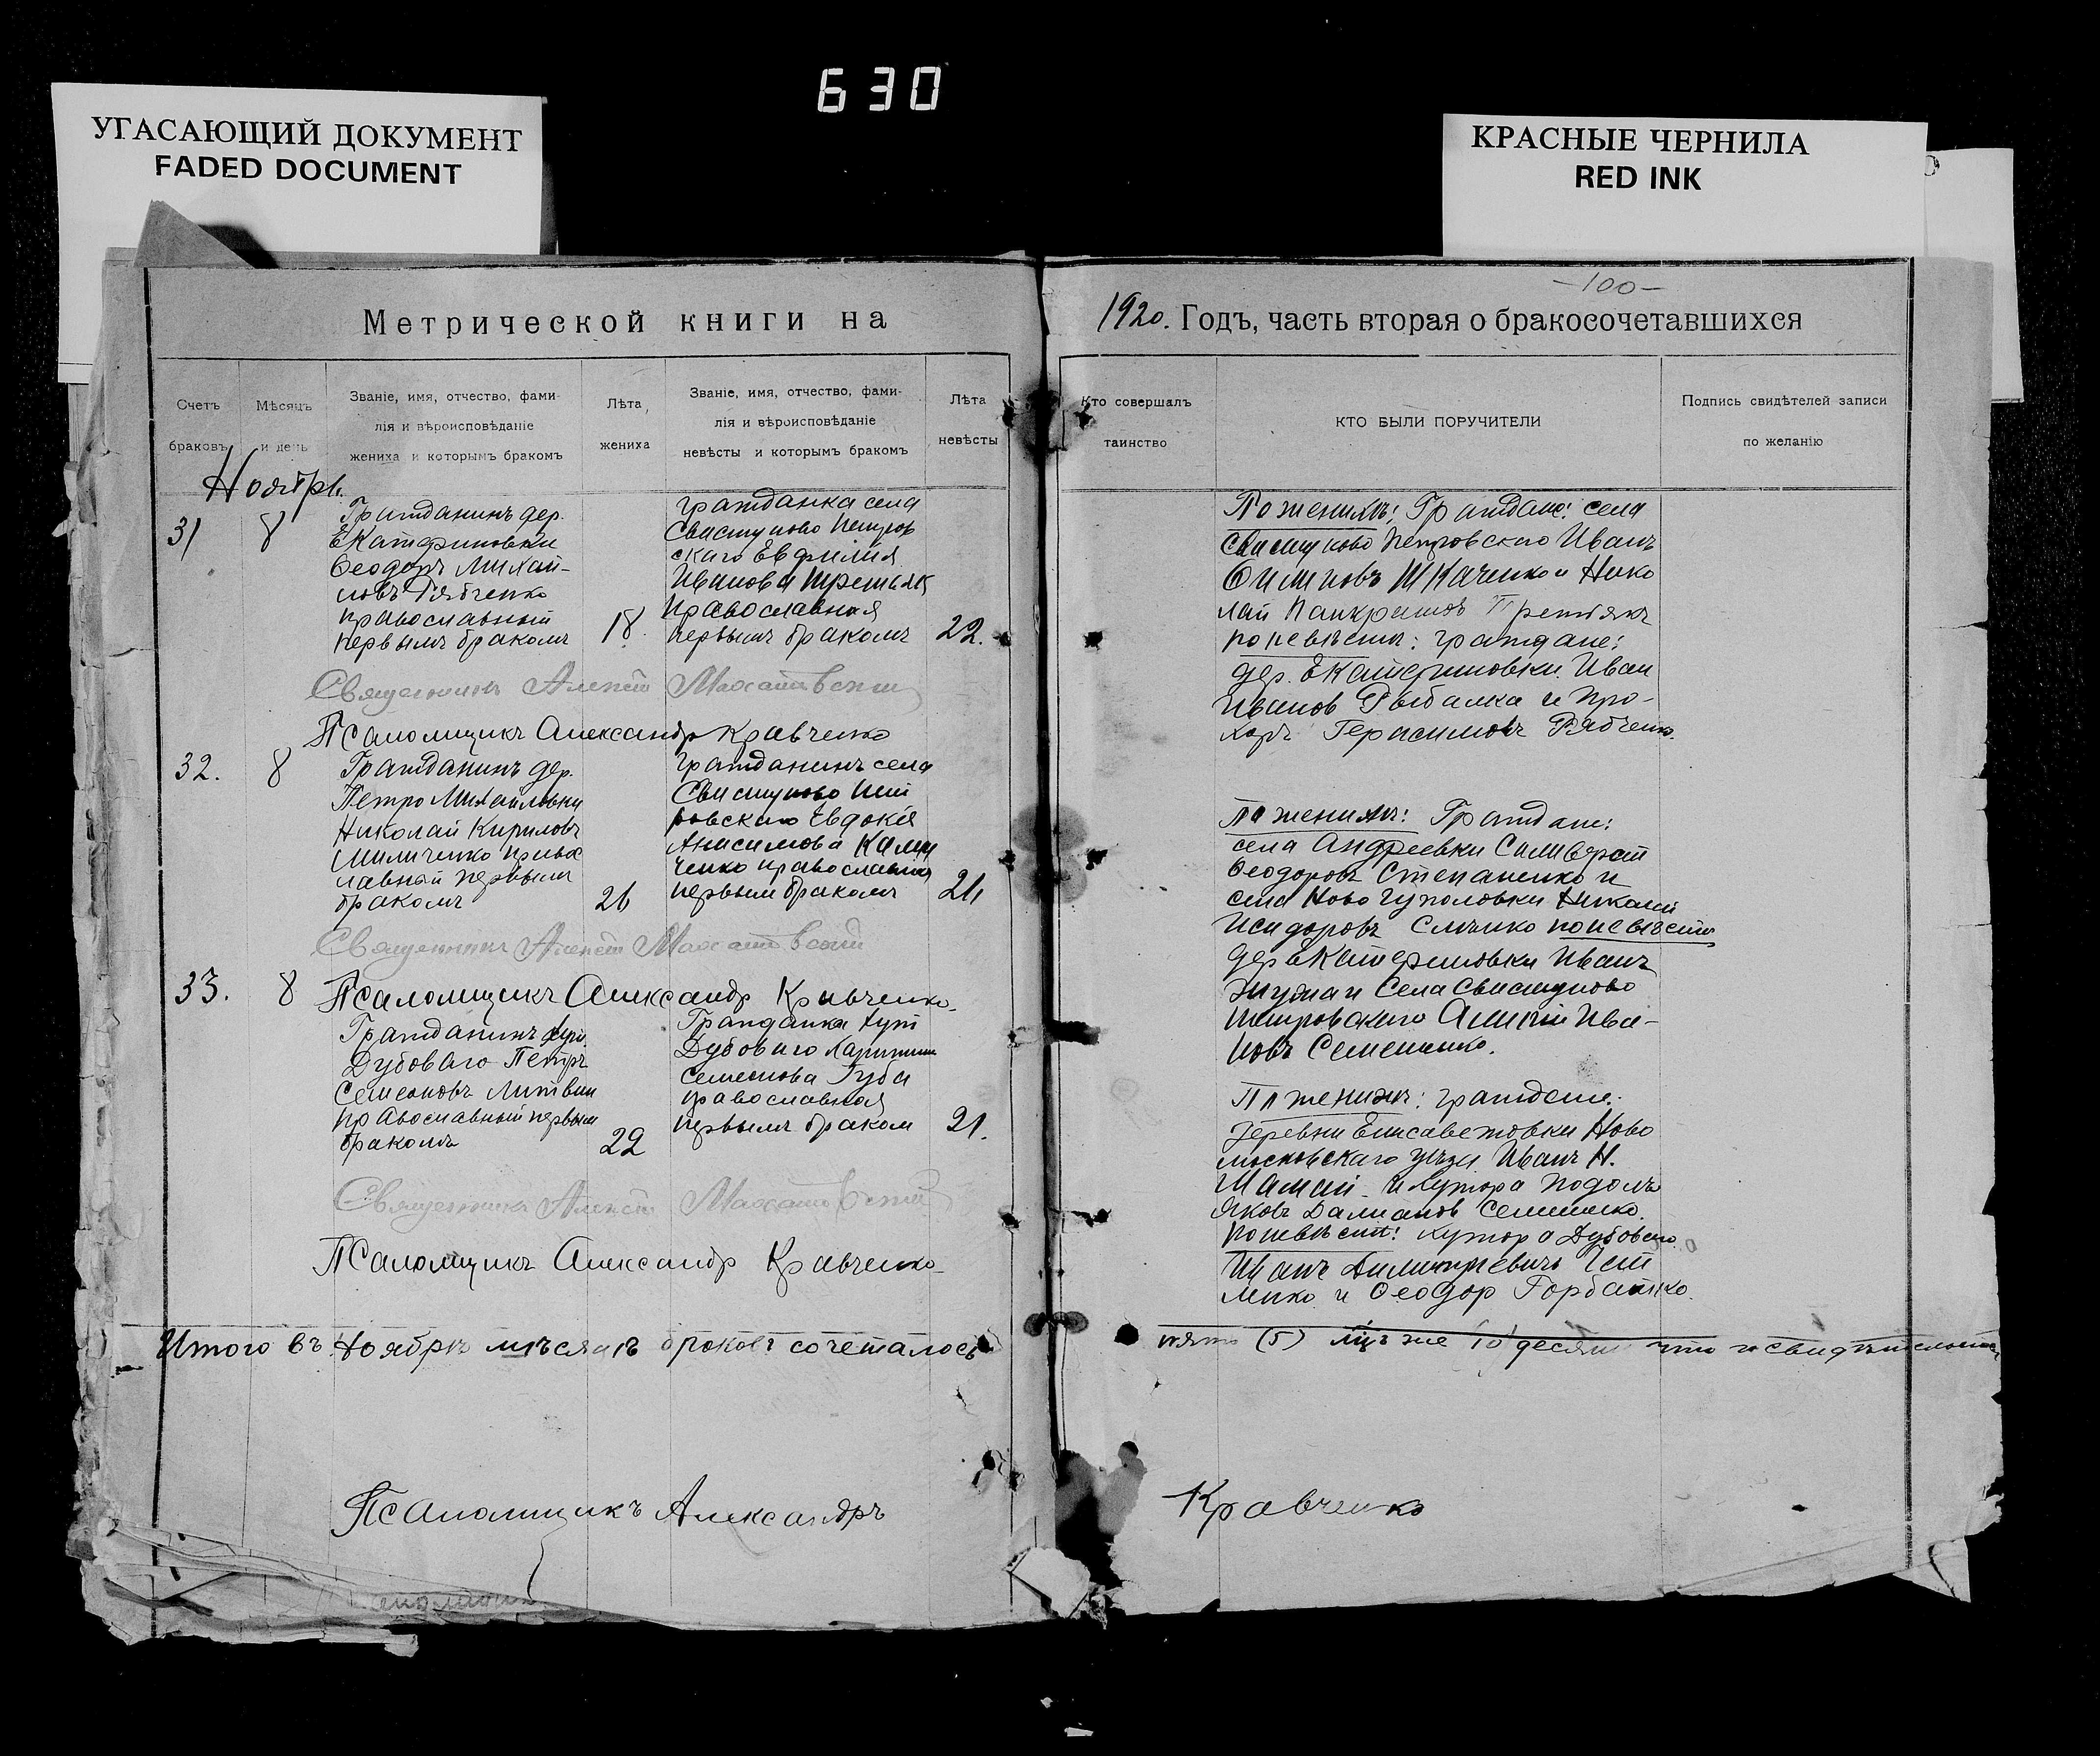 630
УГАСАЮЩИЙ ДОКУМЕНТ
FADED DOCUMENT
КРАСНЫЕ ЧЕРНИЛА
RED INK
-100-
Метрической книги на
1920. Годъ, часть вторая о бракосочетавшихся
Счетъ
браковъ
Мѣсяцъ
и день
Званіе, имя, отчество, фами-
лія и вѣроисповѣданіе
жениха и которымъ бракомъ
Лѣта
жениха
Званіе, имя, отчество, фами-
лія и вѣроисповѣданіе
невѣсты и которымъ бракомъ
Лѣта
невѣсты
Кто совершалъ
таинство
КТО БЫЛИ ПОРУЧИТЕЛИ
Подпись свидѣтелей записи
по желанію
Ноябрь
31
8
Гражданинъ дер.
Екатериновки
Ѳеодоръ Михай-
ловъ Рябченко
православный
первымъ бракомъ
18.
гражданка села
Свистуново Петров
скаго Евфимія
Иванова Третьяк
православная
первымъ бракомъ
22.
По женихѣ: Граждане: села
Свистуново Петровскаго Иванъ
Ѳиминовъ Ткаченко и Нико
лай Панкратовъ Третьякъ
по невѣстѣ: граждане:
дер. Екатериновки Иван
Иванов Рыбалка и Про-
хоръ Герасимовъ Рябченко.
Священникъ Алексѣй
Псаломщикъ Александр Кравченко
32.
8
Гражданинъ дер.
Петро Михайловки
Николай Кириловъ
Миличенко правос
лавный первымъ
бракомъ
21
гражданинъ села
Свистуново Пет
ровскаго Евдокія
Анисимова
ченко православная
первым бракомъ
21
По женихѣ: Граждане:
села Андреевки Силверст
Ѳеодоровъ Степаненко и
села Ново Гуполовки Николай
Исидоровъ Слинко по невѣстѣ
дер Екатериновки Иванъ
и Села Свистуново
Петровскаго Алексѣй Ива-
новъ Семененко.
Священникъ Алексѣй
33.
8
Псаломщикъ Александр Кравченко
Гражданинъ хут.
Дубоваго Петръ
Семеновъ Литвин
православный первым
бракомъ
22
Гражданка хут
Дубоваго
Семенова Губа
православная
первымъ браком
21.
По женихѣ: граждане:
деревни Елисаветовки Ново
московскаго уѣзда Иванъ Н.
Шамай и хутора
Яковъ
По невѣстѣ: хутора Дубоваго
Иванъ Димитріевичъ
и Ѳеодор Горбатко.
Священникъ Алексѣй
Псаломщикъ Александр Кравченко
Итого въ Ноябрѣ мѣсяцѣ браковъ сочеталось
пять (5) лицъ же 10 десять что и свидѣтельствую
Псаломщикъ Александръ
Кравченко